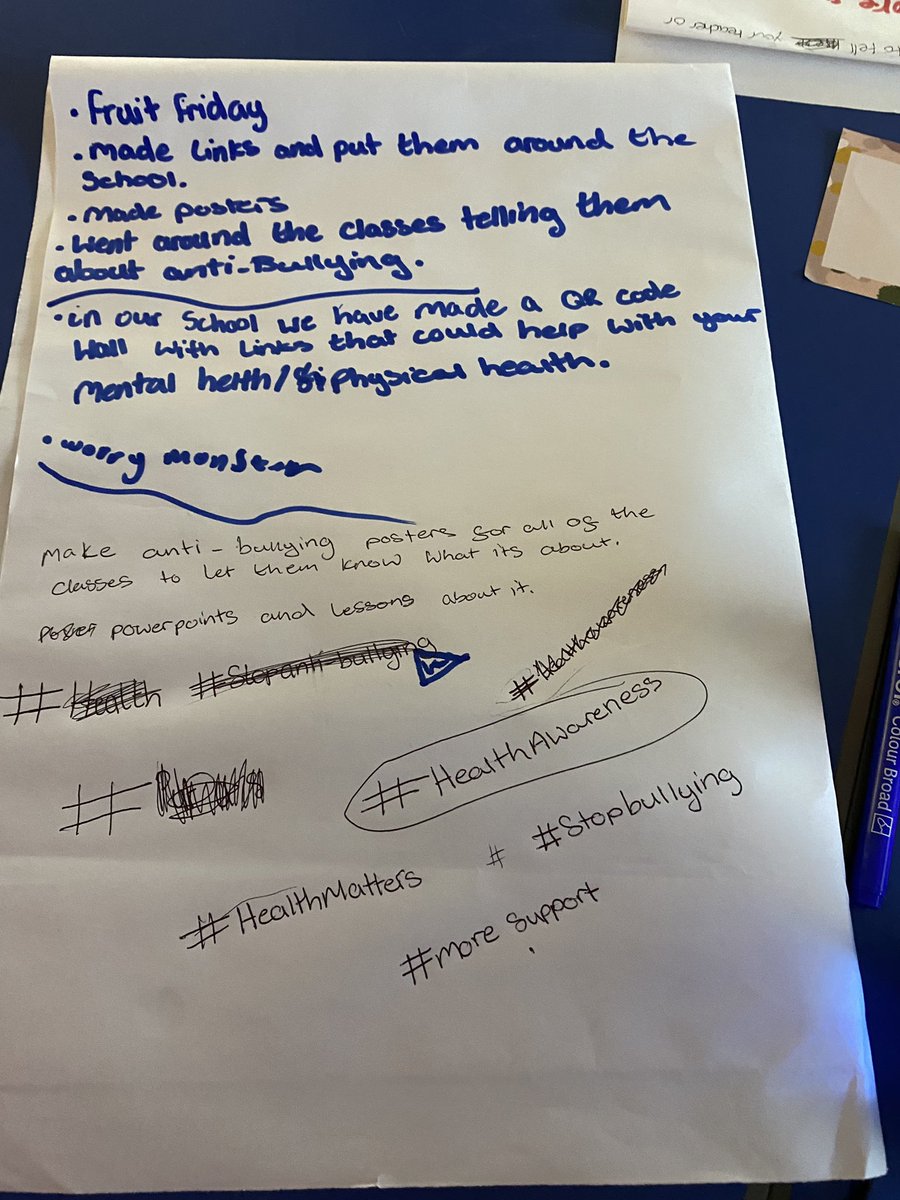 • Fruit Friday
• Made Links and put them around the
School.
• Made posters
• Went around the classes telling them
about anti-Bullying.
• in our School we have made a QR code
Wall with Links that could help with your
Mental helth/ physical health.
• worry monster
Make anti-bullying posters for all of the
classes to let them know what its about.
powerpoints and lessons about it.
# Health #Stop anti-bullying
#HealthAwareness
#
#HealthAwareness
# #Stopbullying
#HealthMatters
#more Support
to tell your teacher or
Colour Broad